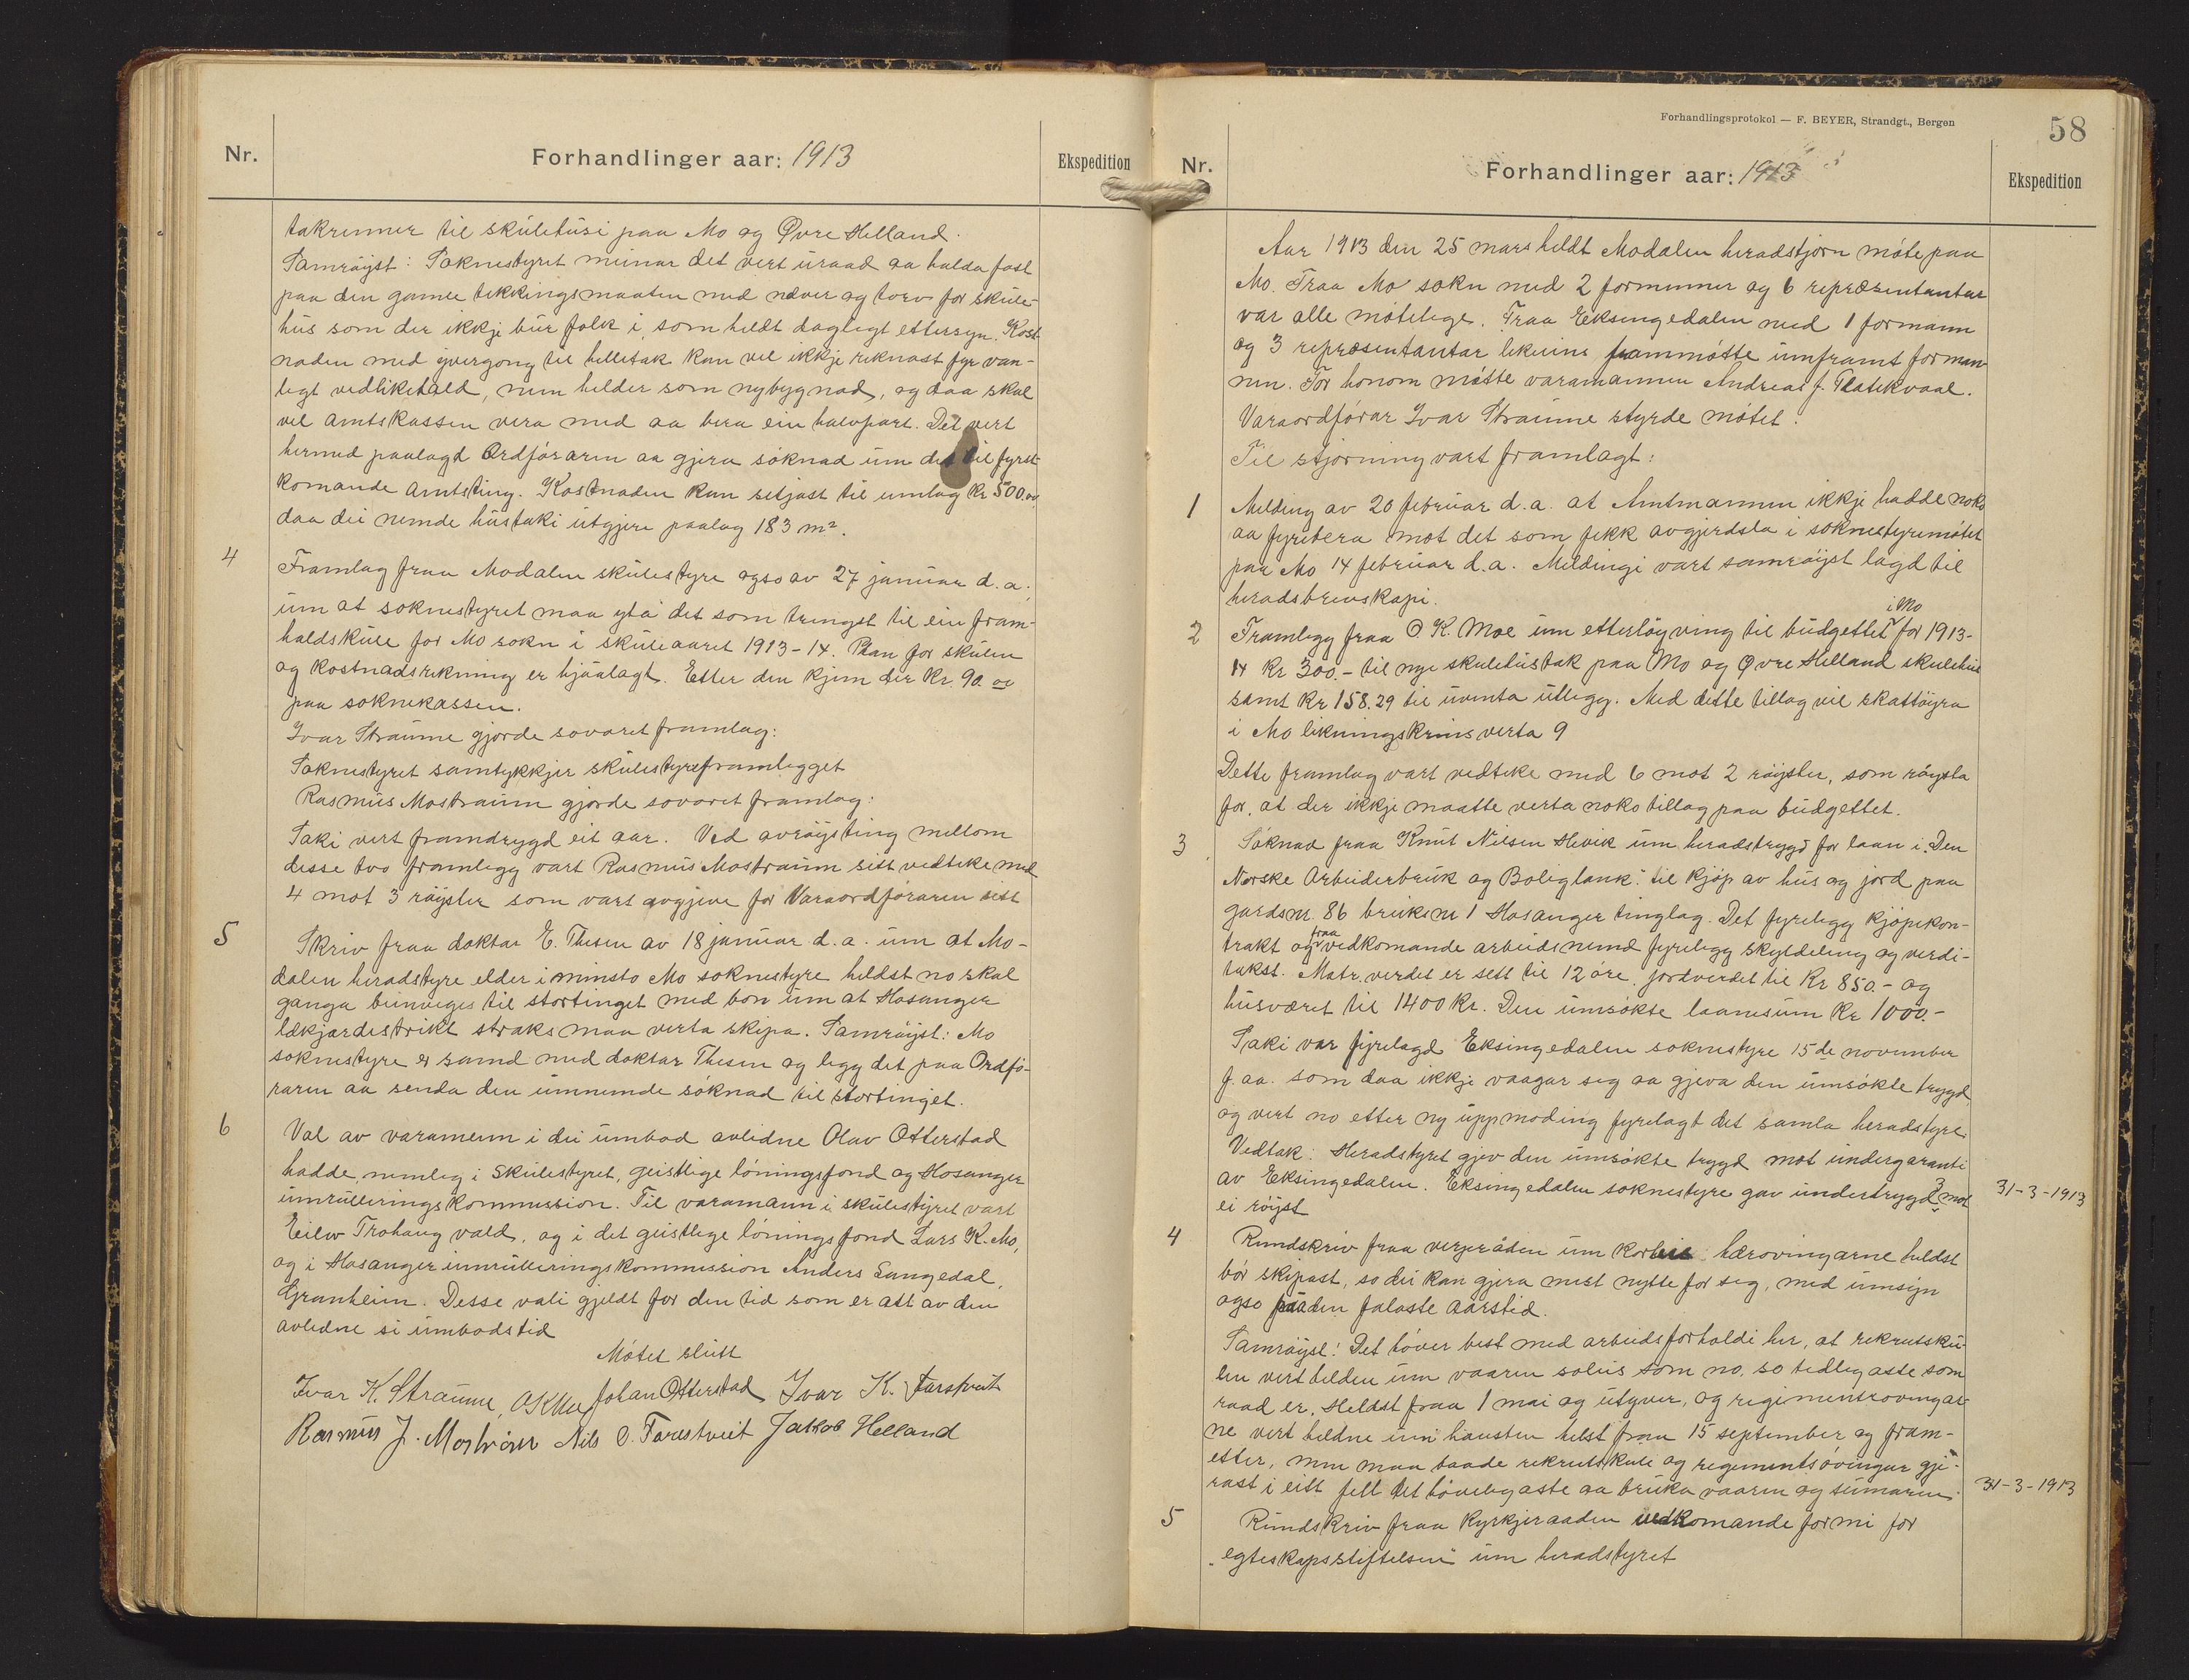 Nr.
Forhandlinger aar: 1913
Ekspedition
takrenner til skulehusi paa Mo og Øvre Helland.
Samrøyst: Soknestyret meinar det vert uraad aa halda fast
paa den gamle tekkingsmaaten med næver og torv for skule-
hus som der ikkje bur folk i, som heldt daglegt ettersyn. Kost-
naden med yvergong til helletak kan vel ikkje reknast fyr van-
legt vedlikehald, men helder som nybygnad, og daa skal
vel amtskassen vera med aa bera ein halvpart. Det vert
hermed paalagd Ordføraren aa gjera søknad um det til fyrst-
komande amtsting. Kostnaden kan setjast til umlag kr 500.00,
daa dei nemde hustaki utgjere paalag 183 m².
4
Framlag fraa Modalen skulestyre ogso av 27 januar d.a.
um at soknestyret maa yta det som trengst til ein fram-
haldskule for Mo sokn i skuleaaret 1913-14. Plan for skulen
og kostnadsrekning er hjaalagt. Etter den kjem der Kr. 90.00
paa soknekassen.
Ivar Straume gjorde sovoret framlag:
Soknestyret samtykkjer skulestyreframlegget
Rasmus Mostraum gjorde sovoret framlag:
Saki vert framdrygd eit aar. Ved avrøysting millom
desse tvo framlegg vart Rasmus Mostraum sitt vedteke med
4 mot 3 røyster som vart avgjeve for Varaordføraren sitt
5
Skriv fraa doktar E. Thesen av 18 januar d.a. um at Mo-
dalen heradstyre elder i minsto Mo soknestyre heldst no skal
ganga beinveges til stortinget med bøn um at Hosanger
lækjardistrikt straks maa verta skipa. Samrøyst: Mo
soknestyre er samd med doktar Thesen og legg det paa Ordfø-
raren aa senda den umnemde søknad til stortinget.
6
Val av varamenn i dei umbod avlidne Olav Otterstad
hadde, nemleg i skulestyret, geistlige løningsfond og Hosanger
innrulleringskommission. Til varamann i skulestyret vart
Eilev Trohaug vald, og i det geistlege løningsfond Lars K. Mo,
og i Hosanger innrulleringskommission Anders Langedal,
Granheim. Desse vali gjeldt for den tid som er att av den
avlidne si umbodstid
Møtet slutt
Ivar K. Straume, OKMoe Johan Otterstad Ivar K. Farstveit
Rasmus J. Mostraum Nils O. Farestveit Jakob Helland
Forhandlingsprotokol — F. BEYER, Strandgt., Bergen
58
Nr.
Forhandlinger aar: 1913
Ekspedition
Aar 1913 den 25 mars heldt Modalen heradstjorn møte paa
Mo. Fraa Mo sokn med 2 formenner og 6 repræsentantar
var alle møtelege. Fraa Eksingedalen med 1 formann
og 3 repræsentantar likeeins frammøtte unnframt forman-
nen. For honom møtte varamannen Andreas J. Flatekvaal.
Varaordførar Ivar Straume styrde møtet.
Til stjorning vart framlagt:
1
Melding av 20 februar d.a. at Amtmannen ikkje hadde noko
aa fyrebera mot det som fekk avgjerdsla i soknestyremøtet
paa Mo 14 februar d.a. Meldingi vart samrøyst lagd til
heradsbrevskapi.
2
Framlegg fraa O.K. Moe um etterløyving til budgettet i Mo for 1913-
14 kr 300.- til nye skulehustak paa Mo og Øvre Helland skulehus
samt kr 158.29 til uventa utlegg. Med dette tillag vil skattøyra
i Mo likningskrins verta 9
Dette framlag vart vedteke med 6 mot 2 røyster, som røysta
for, at der ikkje maatte verta noko tillag paa budgettet.
3
Søknad fraa Knut Nilsen Hevik um heradstrygd for laan i "Den
Norske Arbeiderbruk og Boligbank" til kjøp av hus og jord paa
gardsnr. 86 bruksnr 1 Hosanger tinglag. Det fyrelegg kjøpekon-
trakt og fraa vedkomande arbeidsnemd fyrelegg skyldeling og verdi-
takst. Matr. verdet er sett til 12 øre, jordverdet til Kr 850.- og
husværet til 1400 kr. Den umsøkte laanesum Kr 1000.-
Saki var fyrelagd Eksingedalen soknestyre 15de november
f.aa. som daa ikkje vaagar seg aa gjeva den umsøkte trygd
og vert no etter ny uppmoding fyrelagt det samla heradstyre.
Vedtak: Heradstyret gjev den umsøkte trygd mot undergaranti
av Eksingedalen. Eksingedalen soknestyre gav undertrygd 3 mot
ei røyst
31-3-1913
4
Rundskriv fraa verjeråden um korleis hærøvingarne heldst
bør skipast, so dei kan gjera mest nytte for seg, med umsyn
ogso paa den falaste aarstid.
Samrøyst: Det høver best med arbeidsforholdi her, at rekrutsku-
len vert helden um vaaren soleis som no, so tedlegaste som
raad er. Heldst fraa 1 mai og utyver, og regimentsøvingar-
ne vert heldne um hausten helst fraa 15 september og fram-
etter, men maa baade rekrutskule og regimentsøvingar gje-
rast i eitt fell det høvelegaste aa bruka vaaren og sumaren.
31-3-1913
5
Rundskriv fraa kyrkjeraaden vedkomande formi for
"egteskapsstiftelsen" um heradstyret